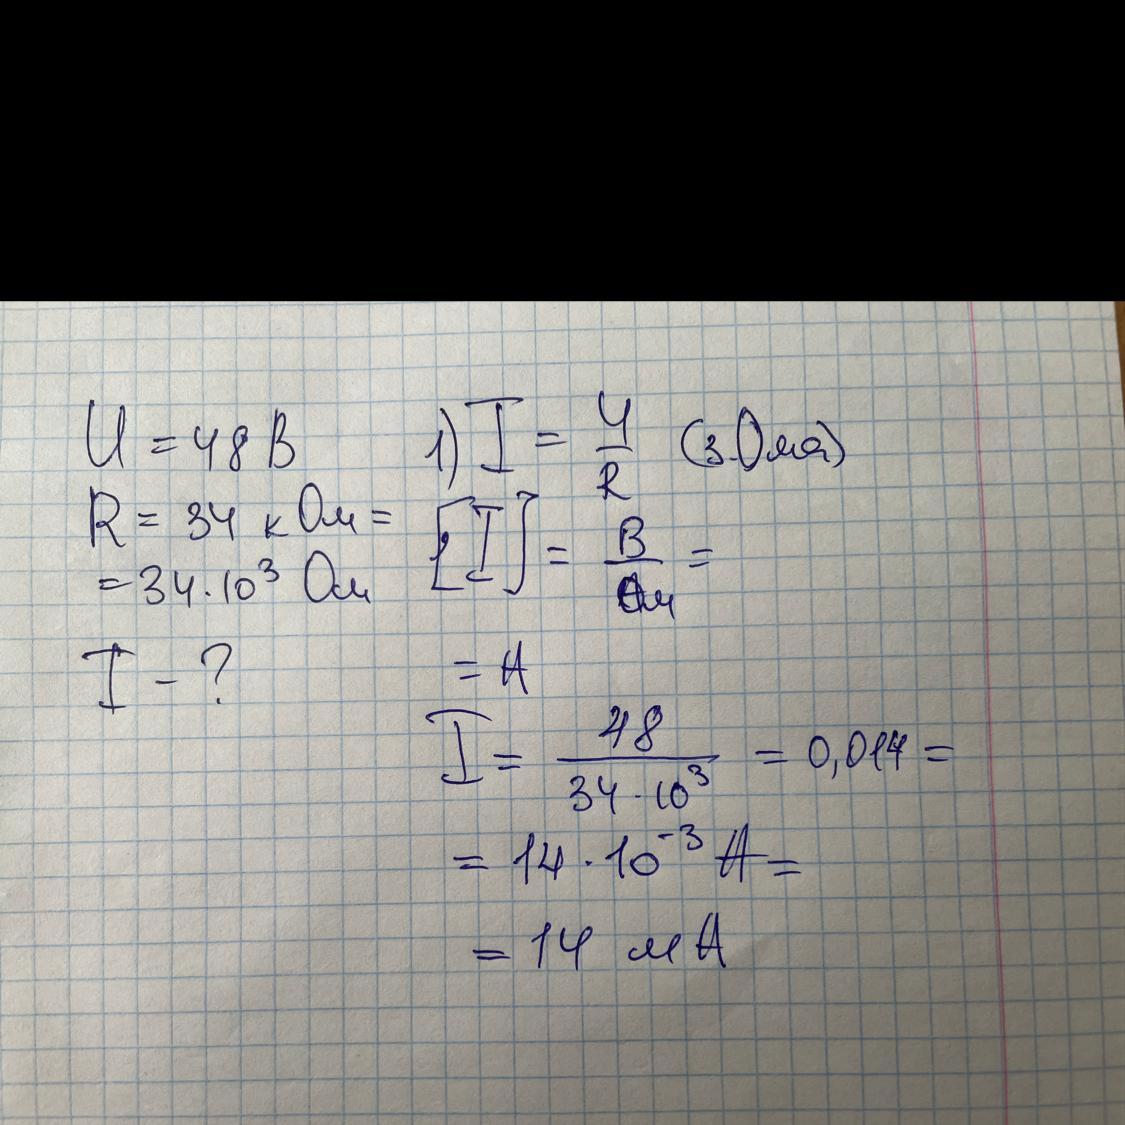 U = 48 В
R = 34 кОм =
= 34·10³ Ом
I - ?
1) I = U/R (з.Ома)
[I] = В/Ом =
= А
I = 48/34·10³ = 0,014 =
= 14·10⁻³ А =
= 14 мА